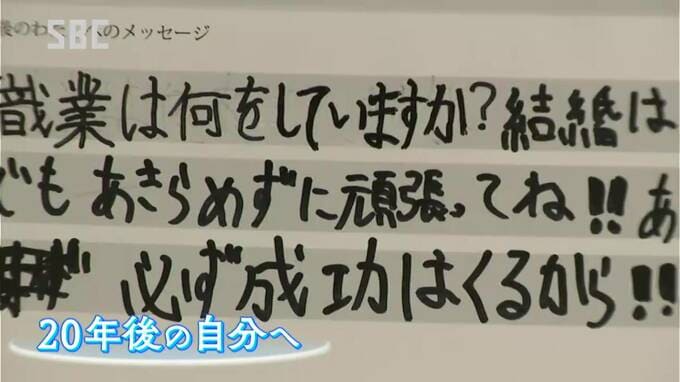 SBC
後のわた へのメッセージ
職業は何をしていますか?結婚は
でも あきらめずに頑張ってね!!あ
必ず成功はくるから!!
20年後の自分へ